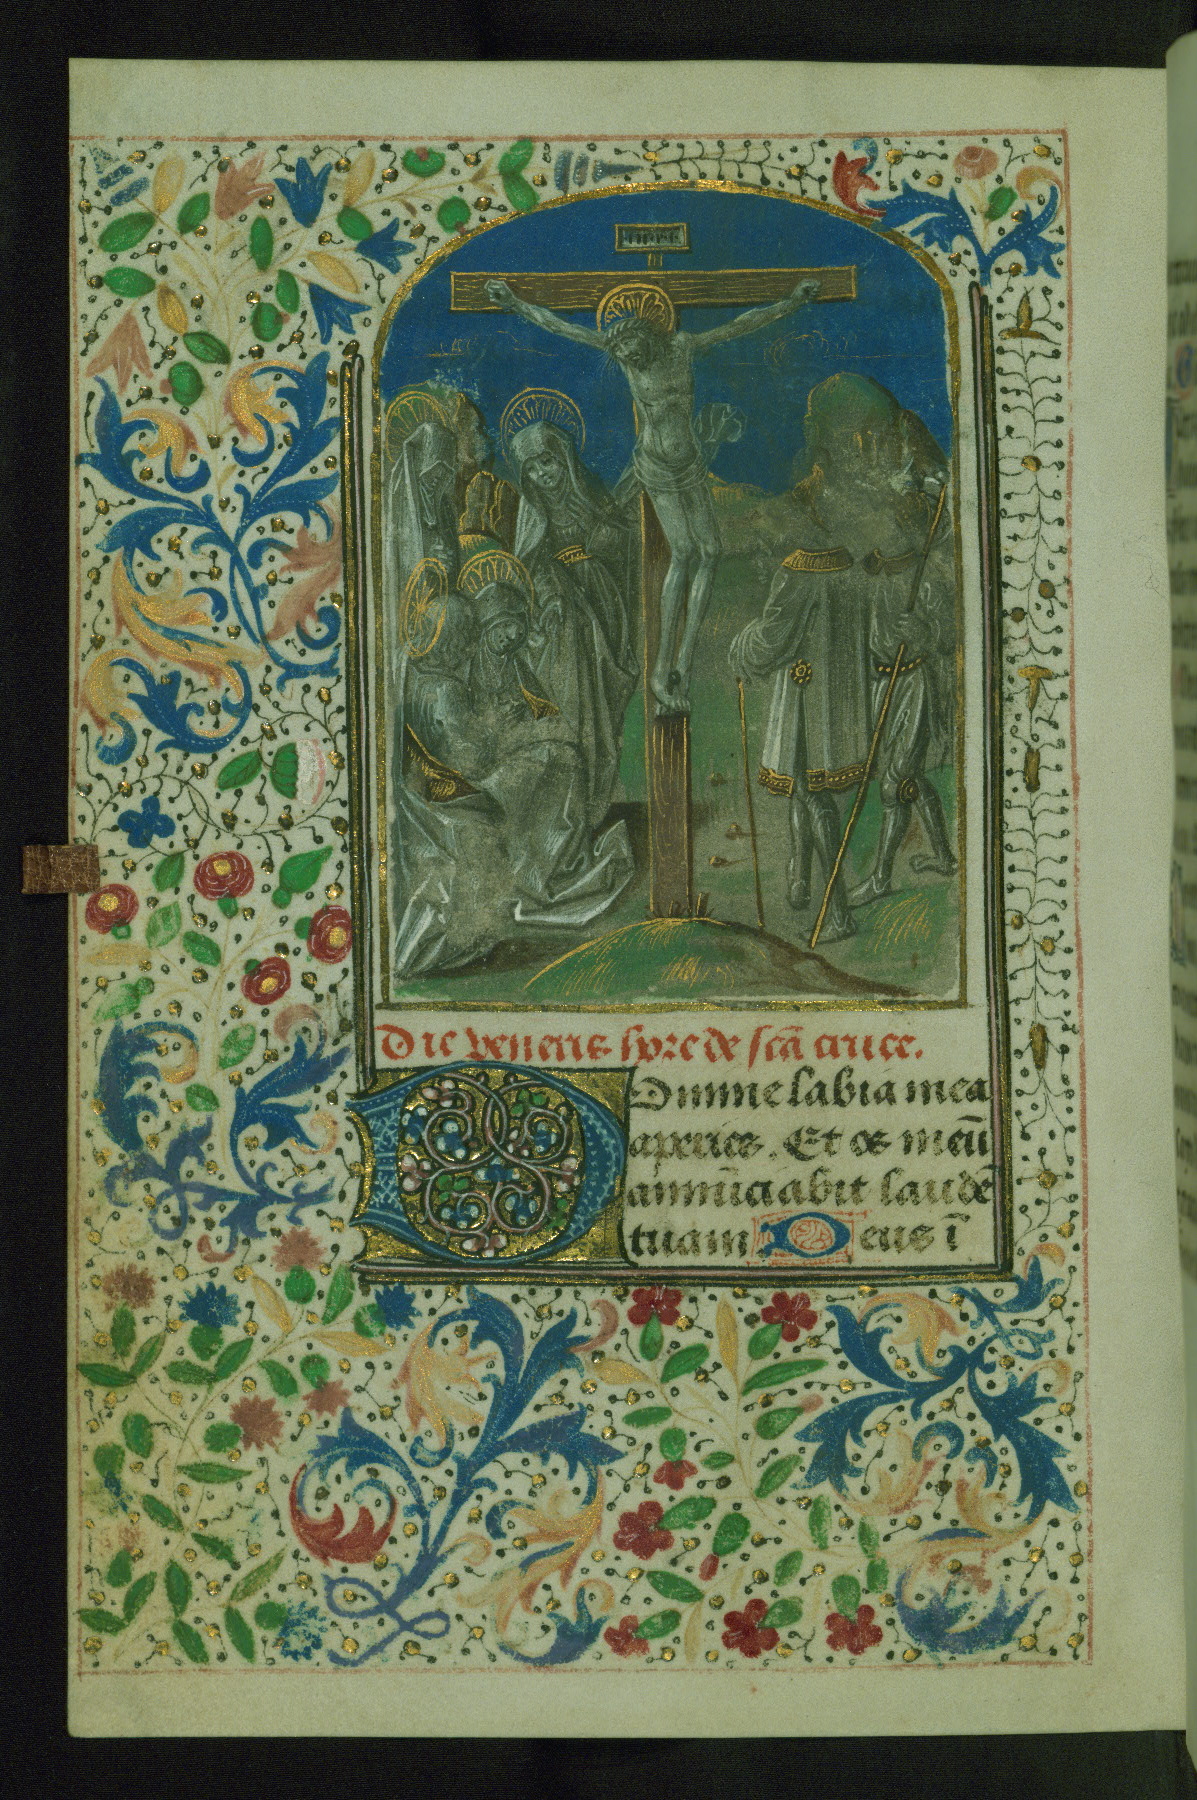 Die veneris hore de scā cruce.
Domine labia mea
aperies. Et os meū
annūciabit laudē
tuam Deus ī